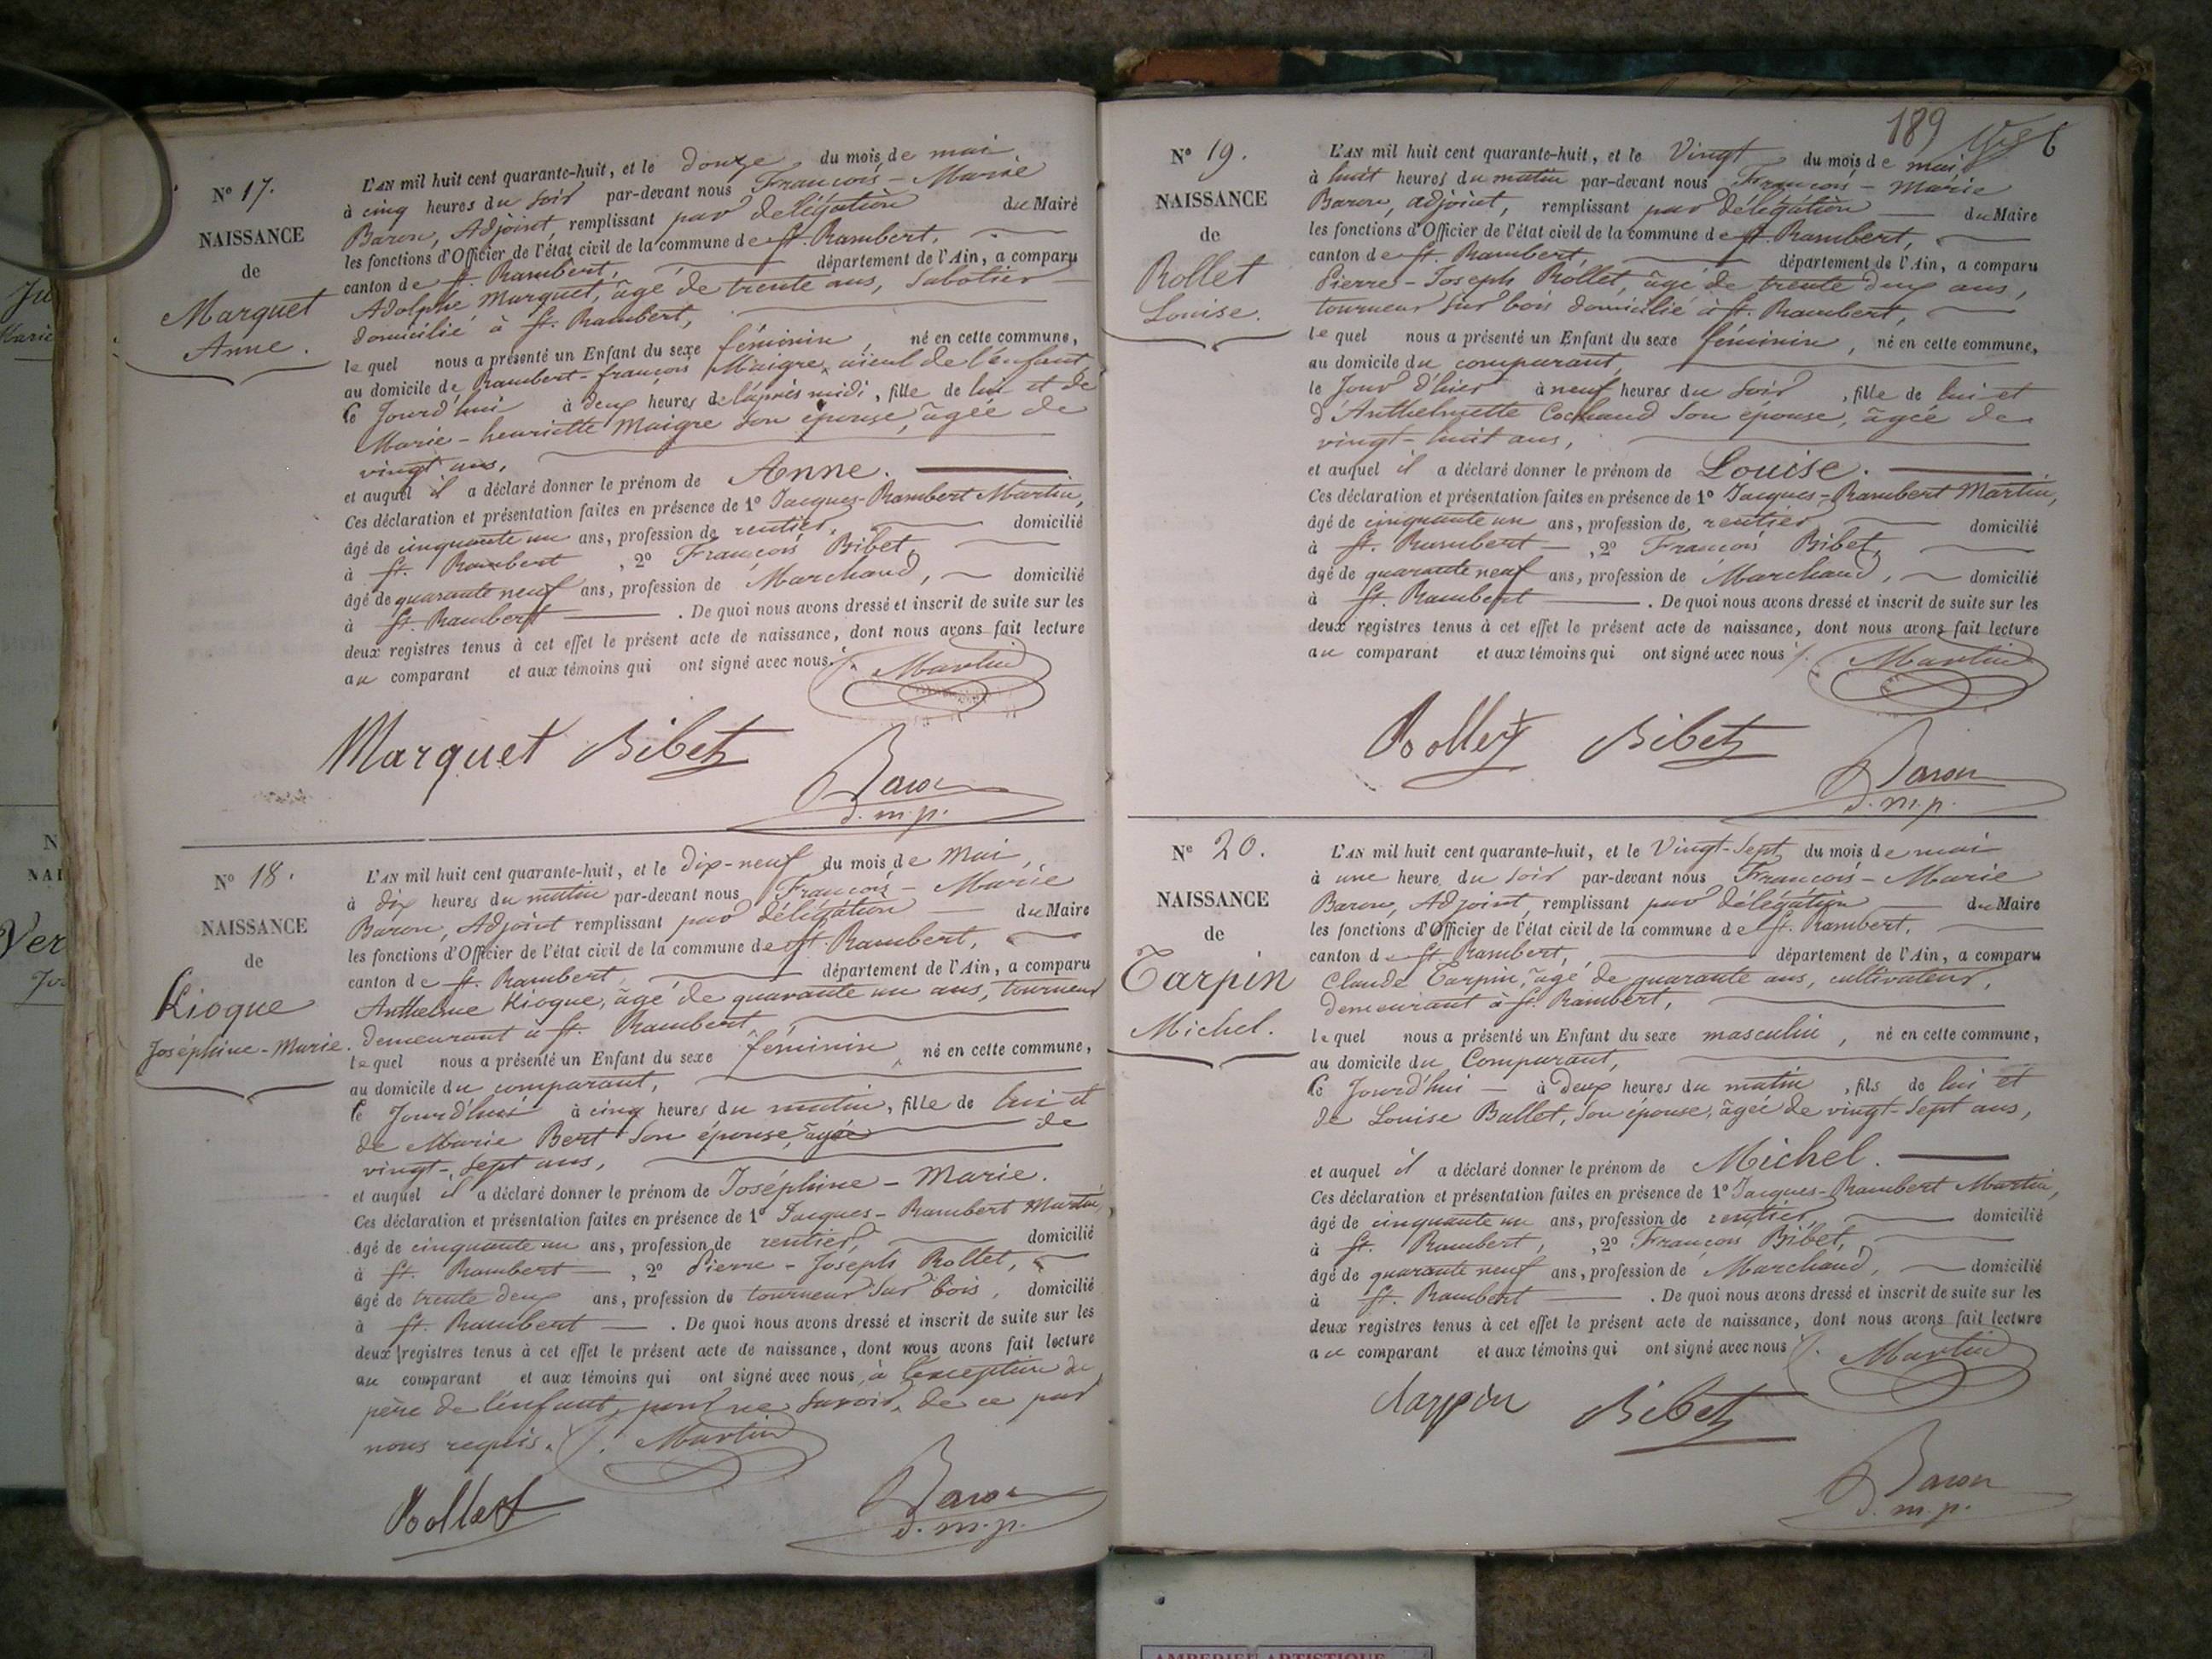 N° 17.
NAISSANCE
de
Marquet
Anne.
L'AN mil huit cent quarante-huit, et le douze du mois de mai
à cinq heures du soir par-devant nous François-Marie
Baron, Adjoint, remplissant par délégation du Maire
les fonctions d'Officier de l'état civil de la commune de St. Rambert,
canton de St. Rambert, département de l'Ain, a comparu
Adolphe Marquet, âgé de trente ans, Sabotier
domicilié à St. Rambert,
lequel nous a présenté un Enfant du sexe féminin, né en cette commune,
au domicile de Rambert-françois Maigre, aïeul de l'enfant
ce Jourd'hui à deux heures de l'après midi, fille de lui et de
Marie-henriette Maigre son épouse, âgée de
vingt ans,
et auquel il a déclaré donner le prénom de Anne.
Ces déclaration et présentation faites en présence de 1° Jacques-Rambert Martin,
âgé de cinquante un ans, profession de rentier, domicilié
à St. Rambert, 2° François Bibet,
âgé de quarante neuf ans, profession de Marchand, domicilié
à St. Rambert. De quoi nous avons dressé et inscrit de suite sur les
deux registres tenus à cet effet le présent acte de naissance, dont nous avons fait lecture
au comparant et aux témoins qui ont signé avec nous. Martin
Marquet Bibet
Baron
d. m. p.
N° 18.
NAISSANCE
de
Kiogue
Joséphine-Marie.
L'AN mil huit cent quarante-huit, et le dix-neuf du mois de Mai,
à dix heures du matin par-devant nous François-Marie
Baron, Adjoint remplissant par délégation du Maire
les fonctions d'Officier de l'état civil de la commune de St. Rambert,
canton de St. Rambert, département de l'Ain, a comparu
Anthelme Kiogue, âgé de quarante un ans, tourneur
demeurant à St. Rambert,
lequel nous a présenté un Enfant du sexe féminin, né en cette commune,
au domicile du comparant,
ce Jourd'hui à cinq heures du matin, fille de lui et
de Marie Bert son épouse, âgée de
vingt-sept ans,
et auquel il a déclaré donner le prénom de Joséphine-Marie.
Ces déclaration et présentation faites en présence de 1° Jacques-Rambert Martin,
âgé de cinquante un ans, profession de rentier, domicilié
à St. Rambert, 2° Pierre-Joseph Rollet,
âgé de trente deux ans, profession de tourneur sur bois, domicilié
à St. Rambert. De quoi nous avons dressé et inscrit de suite sur les
deux registres tenus à cet effet le présent acte de naissance, dont nous avons fait lecture
au comparant et aux témoins qui ont signé avec nous, à l'exception du
père de l'enfant, pour ne savoir, de ce par
nous requis. Martin
Rollet
Baron
d. m. p.
189
6
N° 19.
NAISSANCE
de
Rollet
Louise.
L'AN mil huit cent quarante-huit, et le Vingt du mois de mai,
à huit heures du matin par-devant nous François-Marie
Baron, adjoint, remplissant par délégation du Maire
les fonctions d'Officier de l'état civil de la commune de St. Rambert,
canton de St. Rambert, département de l'Ain, a comparu
Pierre-Joseph Rollet, âgé de trente deux ans,
tourneur sur bois domicilié à St. Rambert,
lequel nous a présenté un Enfant du sexe féminin, né en cette commune,
au domicile du comparant,
le Jour d'hier à neuf heures du soir, fille de lui et
d'Anthelmette Cochand son épouse, âgée de
vingt-huit ans,
et auquel il a déclaré donner le prénom de Louise.
Ces déclaration et présentation faites en présence de 1° Jacques-Rambert Martin,
âgé de cinquante un ans, profession de rentier domicilié
à St. Rambert, 2° François Bibet,
âgé de quarante neuf ans, profession de Marchand, domicilié
à St. Rambert. De quoi nous avons dressé et inscrit de suite sur les
deux registres tenus à cet effet le présent acte de naissance, dont nous avons fait lecture
au comparant et aux témoins qui ont signé avec nous. Martin
Rollet Bibet
Baron
d. m. p.
N° 20.
NAISSANCE
de
Tarpin
Michel.
L'AN mil huit cent quarante-huit, et le Vingt-Sept du mois de mai
à une heure du soir par-devant nous François-Marie
Baron, Adjoint, remplissant par délégation du Maire
les fonctions d'Officier de l'état civil de la commune de St. Rambert,
canton de St. Rambert, département de l'Ain, a comparu
Claude Tarpin, âgé de quarante ans, cultivateur,
demeurant à St. Rambert,
lequel nous a présenté un Enfant du sexe masculin, né en cette commune,
au domicile du Comparant,
ce Jourd'hui à Deux heures du matin, fils de lui et
de Louise Ballet, son épouse, âgée de vingt-sept ans,
et auquel il a déclaré donner le prénom de Michel.
Ces déclaration et présentation faites en présence de 1° Jacques-Rambert Martin,
âgé de cinquante un ans, profession de rentier, domicilié
à St. Rambert, 2° François Bibet,
âgé de quarante neuf ans, profession de Marchand, domicilié
à St. Rambert. De quoi nous avons dressé et inscrit de suite sur les
deux registres tenus à cet effet le présent acte de naissance, dont nous avons fait lecture
au comparant et aux témoins qui ont signé avec nous. Martin
tarpin Bibet
Baron
d. m. p.
AMBERIEU ARTISTIQUE